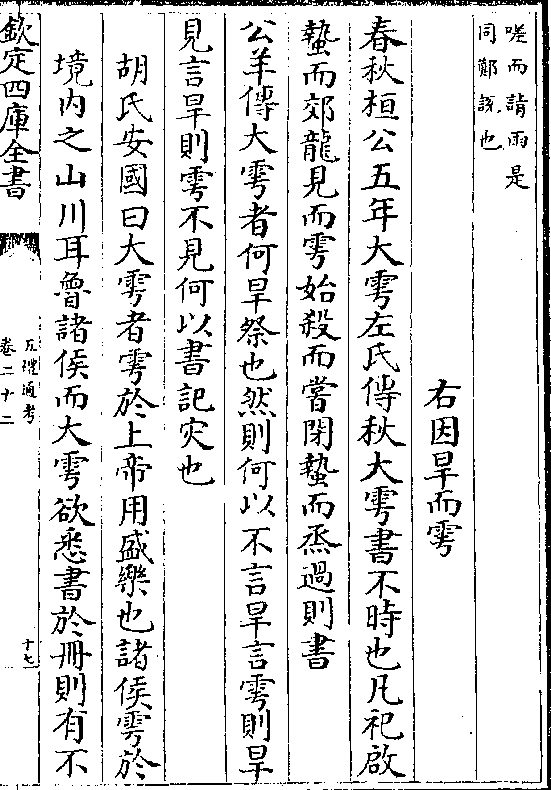 嗟而請雨是
同鄭說也
右因旱而雩
春秋桓公五年大雩左氏傳秋大雩書不時也凡祀啟
蟄而郊龍見而雩始殺而嘗閉蟄而烝過則書
公羊傳大雩者何旱祭也然則何以不言旱言雩則旱
見言旱則雩不見何以書記災也
胡氏安國曰大雩者雩於上帝用盛樂也諸侯雩於
境內之山川耳魯諸侯而大雩欲悉書於冊則有不
欽定四庫全書
五禮通考
卷二十二
十七